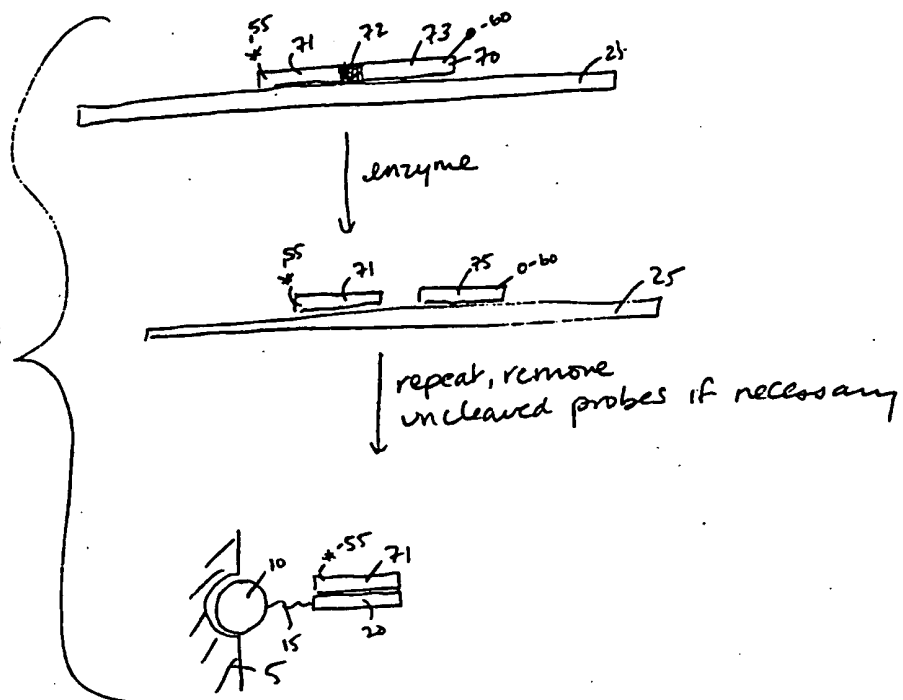 55 71 72 73 -60
* 70 25
enzyme
55 71 75 0-60
* 25
repeat, remove
uncleaved probes if necessary
10 *-55 71
15 20
5